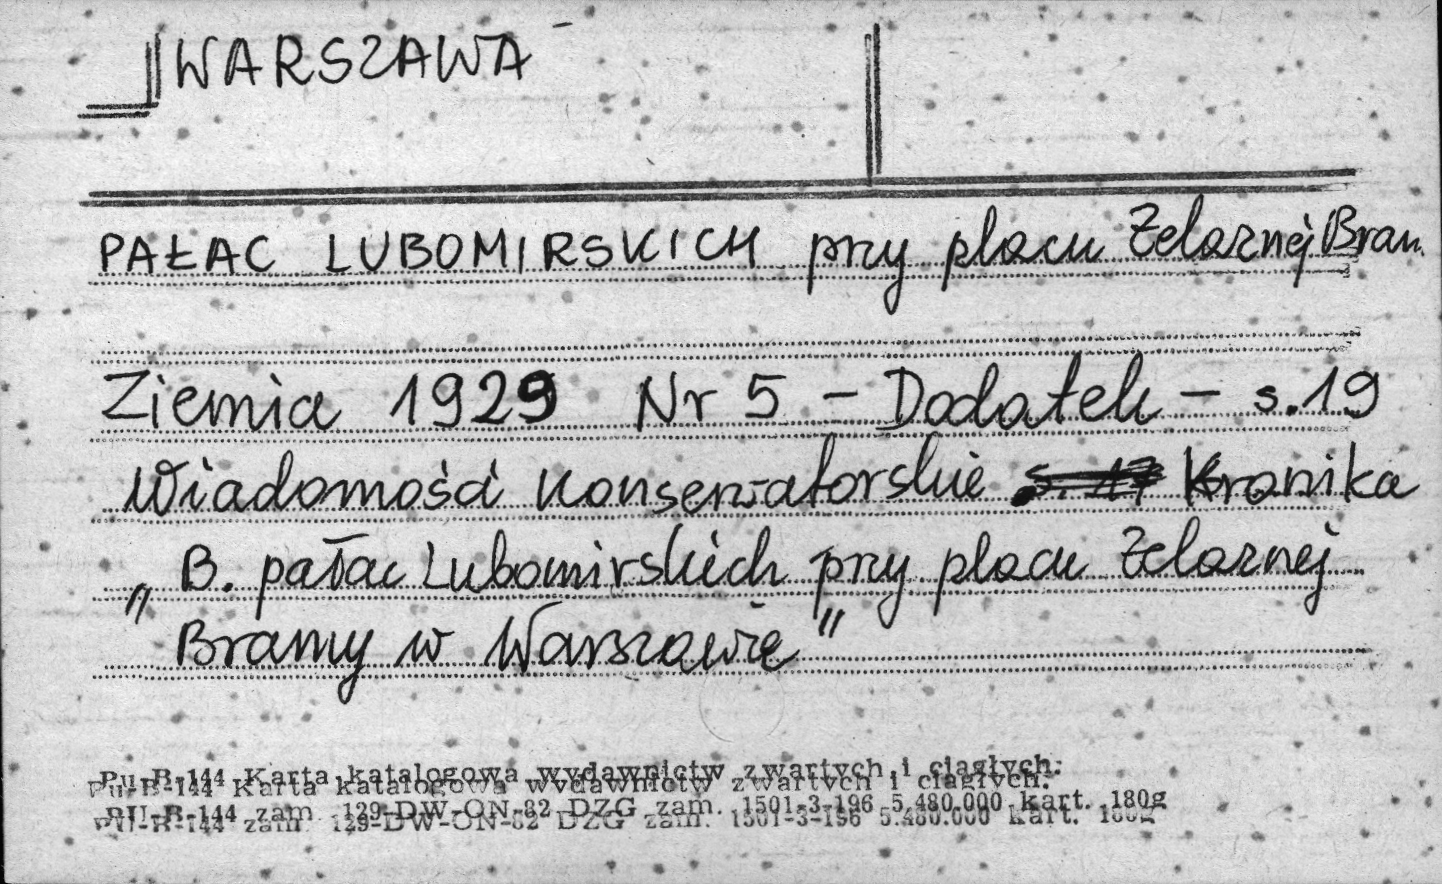 WARSZAWA
PAŁAC LUBOMIRSKICH przy placu Żelaznej Bram.
Ziemia 1929 Nr 5 - Dodatek - s.19
Wiadomości Konserwatorskie s. 17 Kronika
„B. pałac Lubomirskich przy placu Żelaznej
Bramy w Warszawie"
Pu-B-144 Karta katalogowa wydawnictw zwartych i ciągłych.
PU-B-144 zam. 129-DW-ON-82 DZG zam. 1501-3-196 5.480.000 kart. 180g